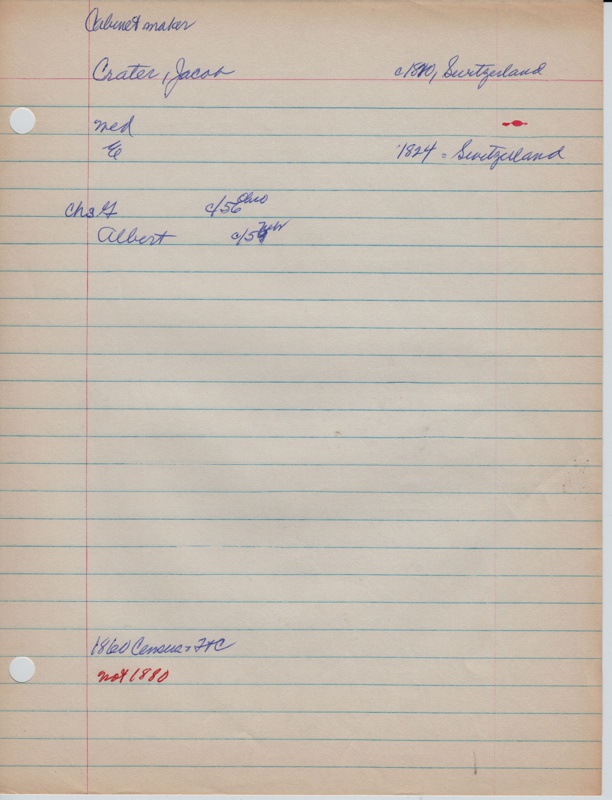 Cabinet maker
Crater, Jacob c/1820, Switzerland
med
E 1824 = Switzerland
Chs G c/56 Ohio
Albert c/59 Nebr
1860 Census = F+C
not 1880